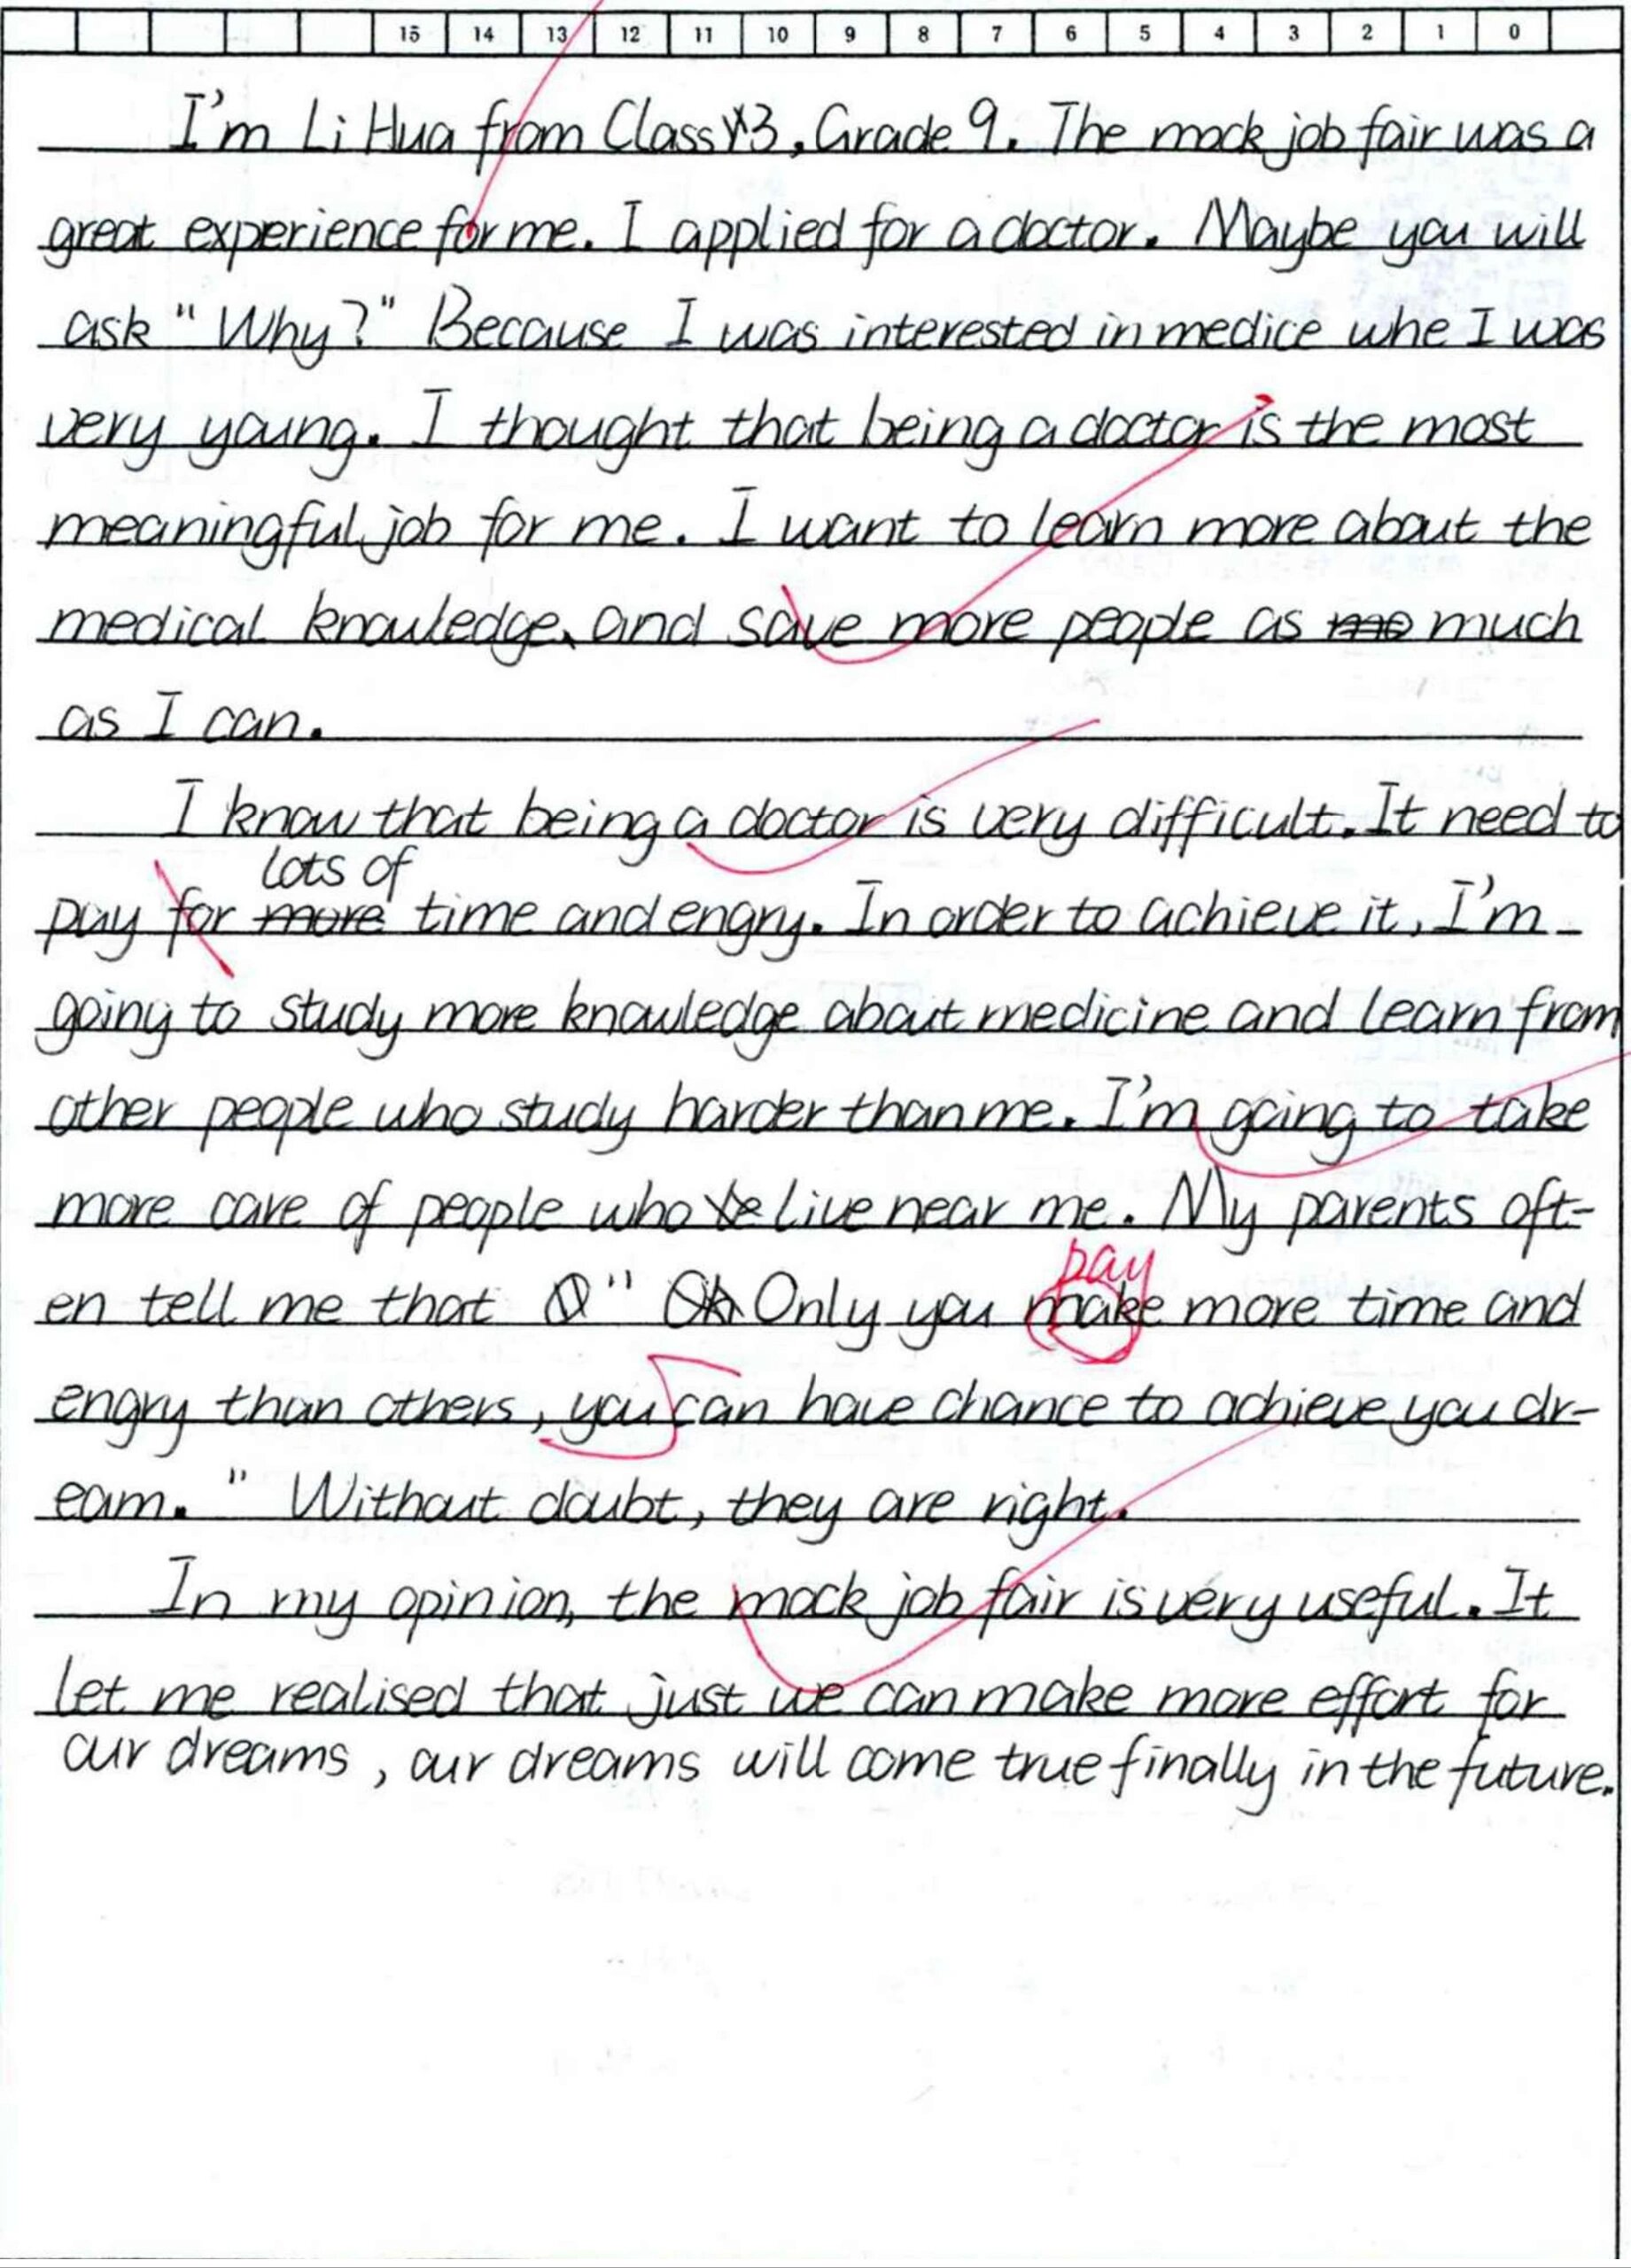 15 14 13 12 11 10 9 8 7 6 5 4 3 2 1 0
I'm Li Hua from Class 3, Grade 9. The mock job fair was a
great experience for me. I applied for a doctor. Maybe you will
ask "Why?" Because I was interested in medice whe I was
very young. I thought that being a doctor is the most
meaningful job for me. I want to learn more about the
medical knowledge, and save more people as much
as I can.
I know that being a doctor is very difficult. It need to
lots of
pay for more time and engry. In order to achieve it, I'm
going to study more knowledge about medicine and learn from
other people who study harder than me. I'm going to take
more care of people who live near me. My parents oft-
pay
en tell me that " Only you make more time and
engry than others, you can have chance to achieve you dr-
eam." Without doubt, they are right.
In my opinion, the mock job fair is very useful. It
let me realised that just we can make more effort for
our dreams, our dreams will come true finally in the future.